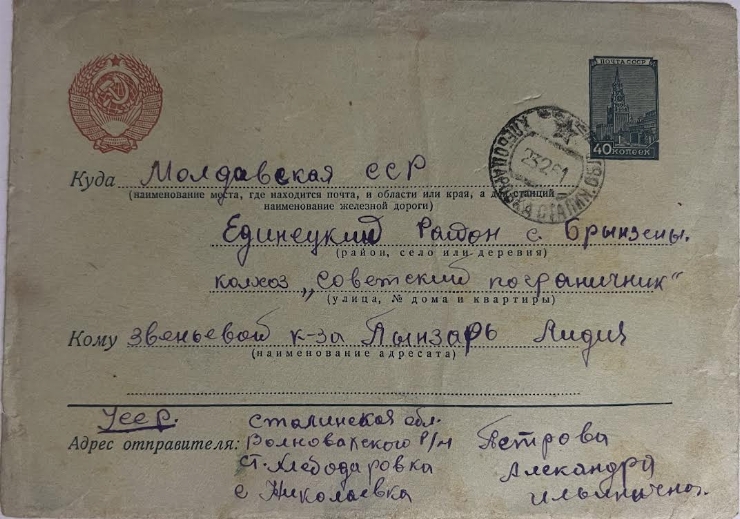 ПОЧТА СССР
40 КОПЕЕК
23 2 61
Куда Молдавская ССР
(наименование места, где находится почта, и области или края, а для станций
наименование железной дороги)
Единецкий Район с. Брынзены.
(район, село или деревня)
колхоз „Советский пограничник“
(улица, № дома и квартиры)
Кому звеньевой к-за Лынзарь Лидия
(наименование адресата)
Усср. Сталинская обл.
Адрес отправителя: Волновахского р/н
ст. Хлебодаровка
с Николаевка
Пястрова
Александра
Ильинична.